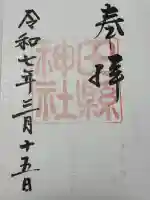 奉拝
田縣神社
令和七年三月十五日